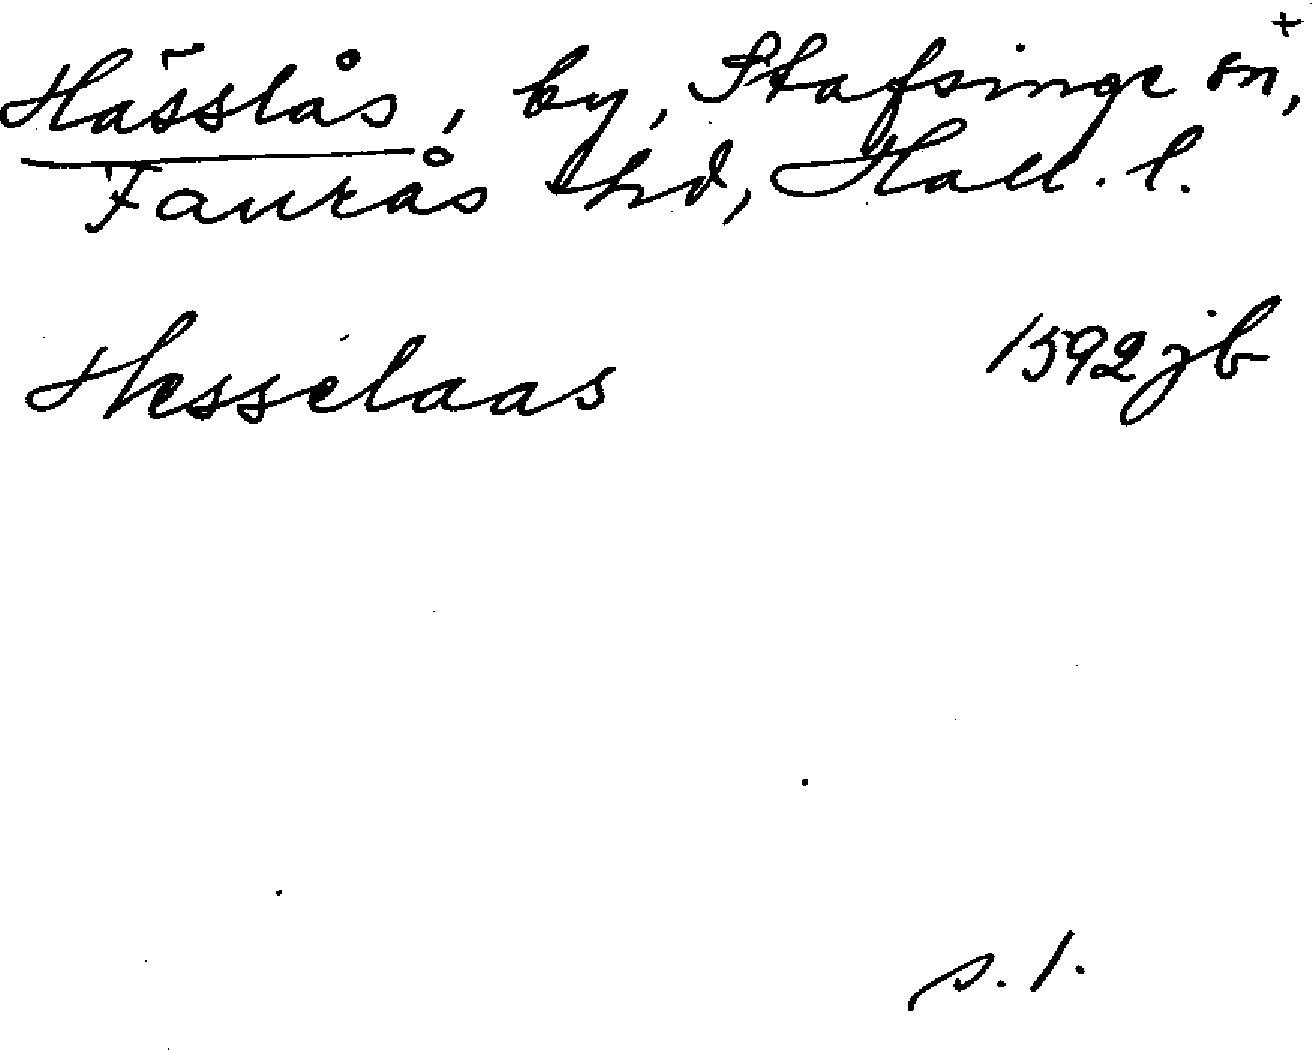 +
Hässlås, by, Stafsinge sn,
Faurås hd, Hall. l.
Hesselaas 1592 jb
s. 1.